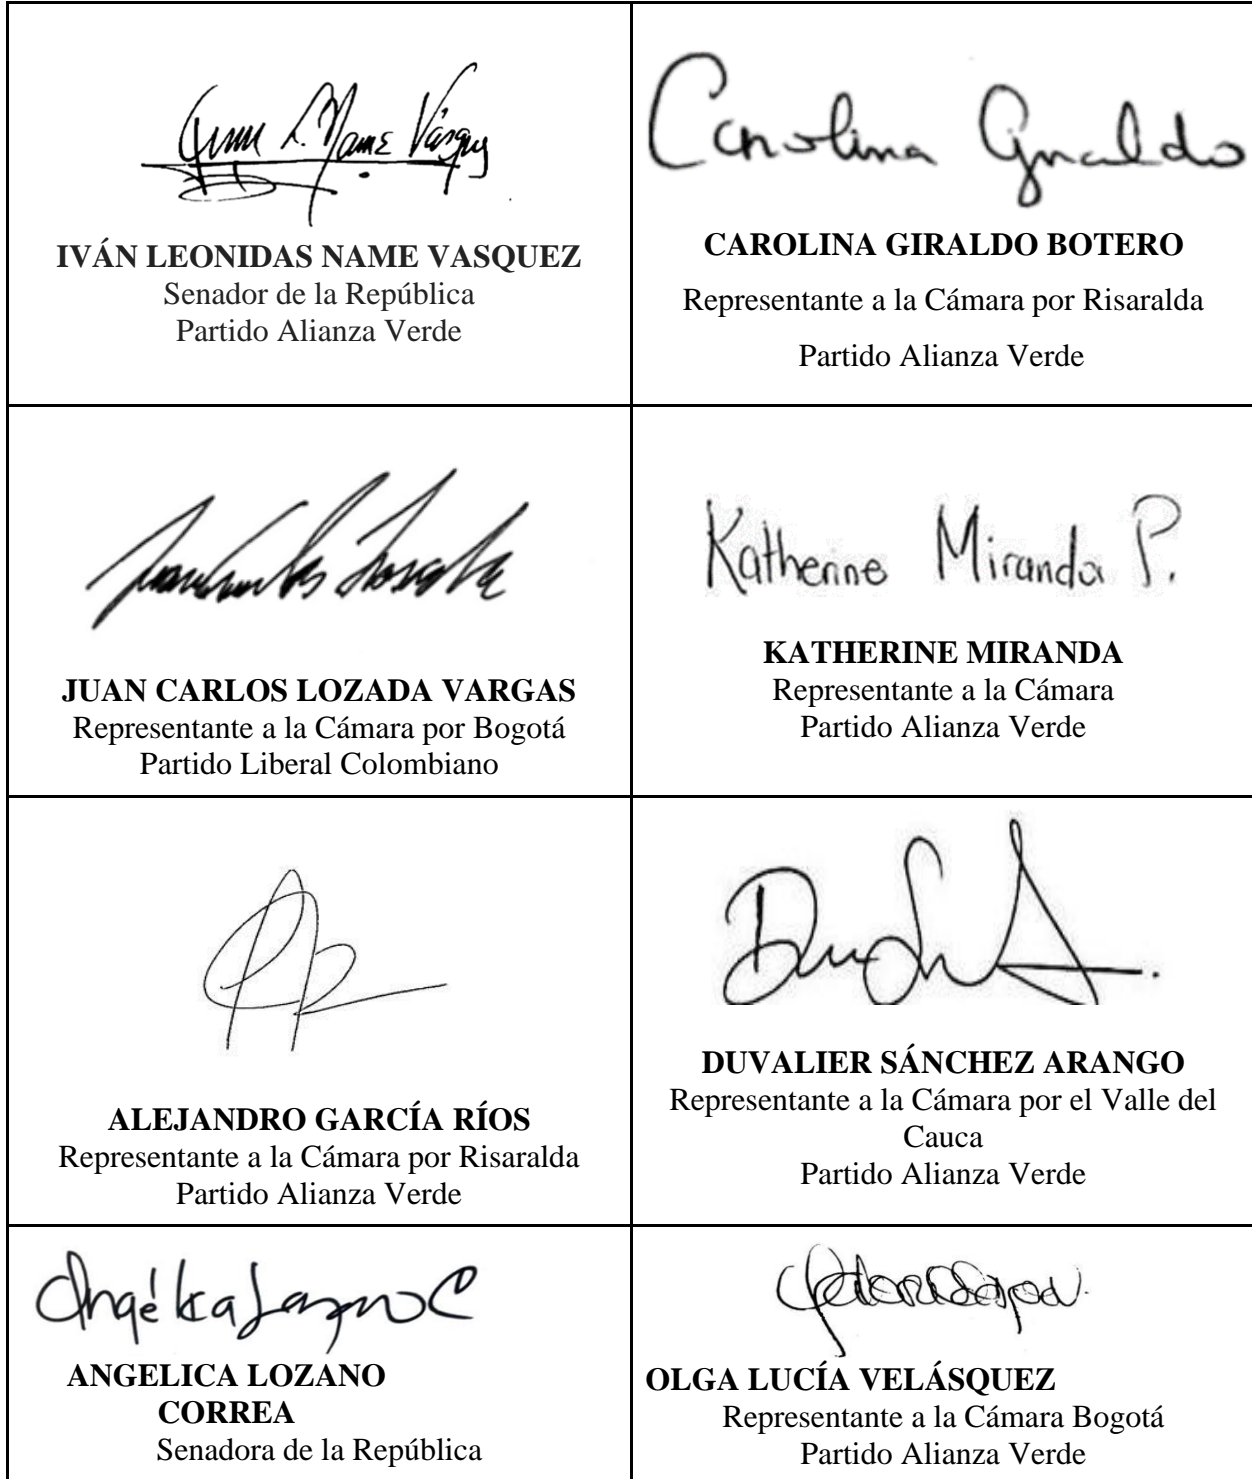 Ivan L. Name Vasquez
IVÁN LEONIDAS NAME VASQUEZ
Senador de la República
Partido Alianza Verde
Carolina Giraldo
CAROLINA GIRALDO BOTERO
Representante a la Cámara por Risaralda
Partido Alianza Verde
Juan Carlos Lozada
JUAN CARLOS LOZADA VARGAS
Representante a la Cámara por Bogotá
Partido Liberal Colombiano
Katherine Miranda P.
KATHERINE MIRANDA
Representante a la Cámara
Partido Alianza Verde
ALEJANDRO GARCÍA RÍOS
Representante a la Cámara por Risaralda
Partido Alianza Verde
DUVALIER SÁNCHEZ ARANGO
Representante a la Cámara por el Valle del
Cauca
Partido Alianza Verde
Angélica Lozano C
ANGELICA LOZANO
CORREA
Senadora de la República
OLGA LUCÍA VELÁSQUEZ
Representante a la Cámara Bogotá
Partido Alianza Verde